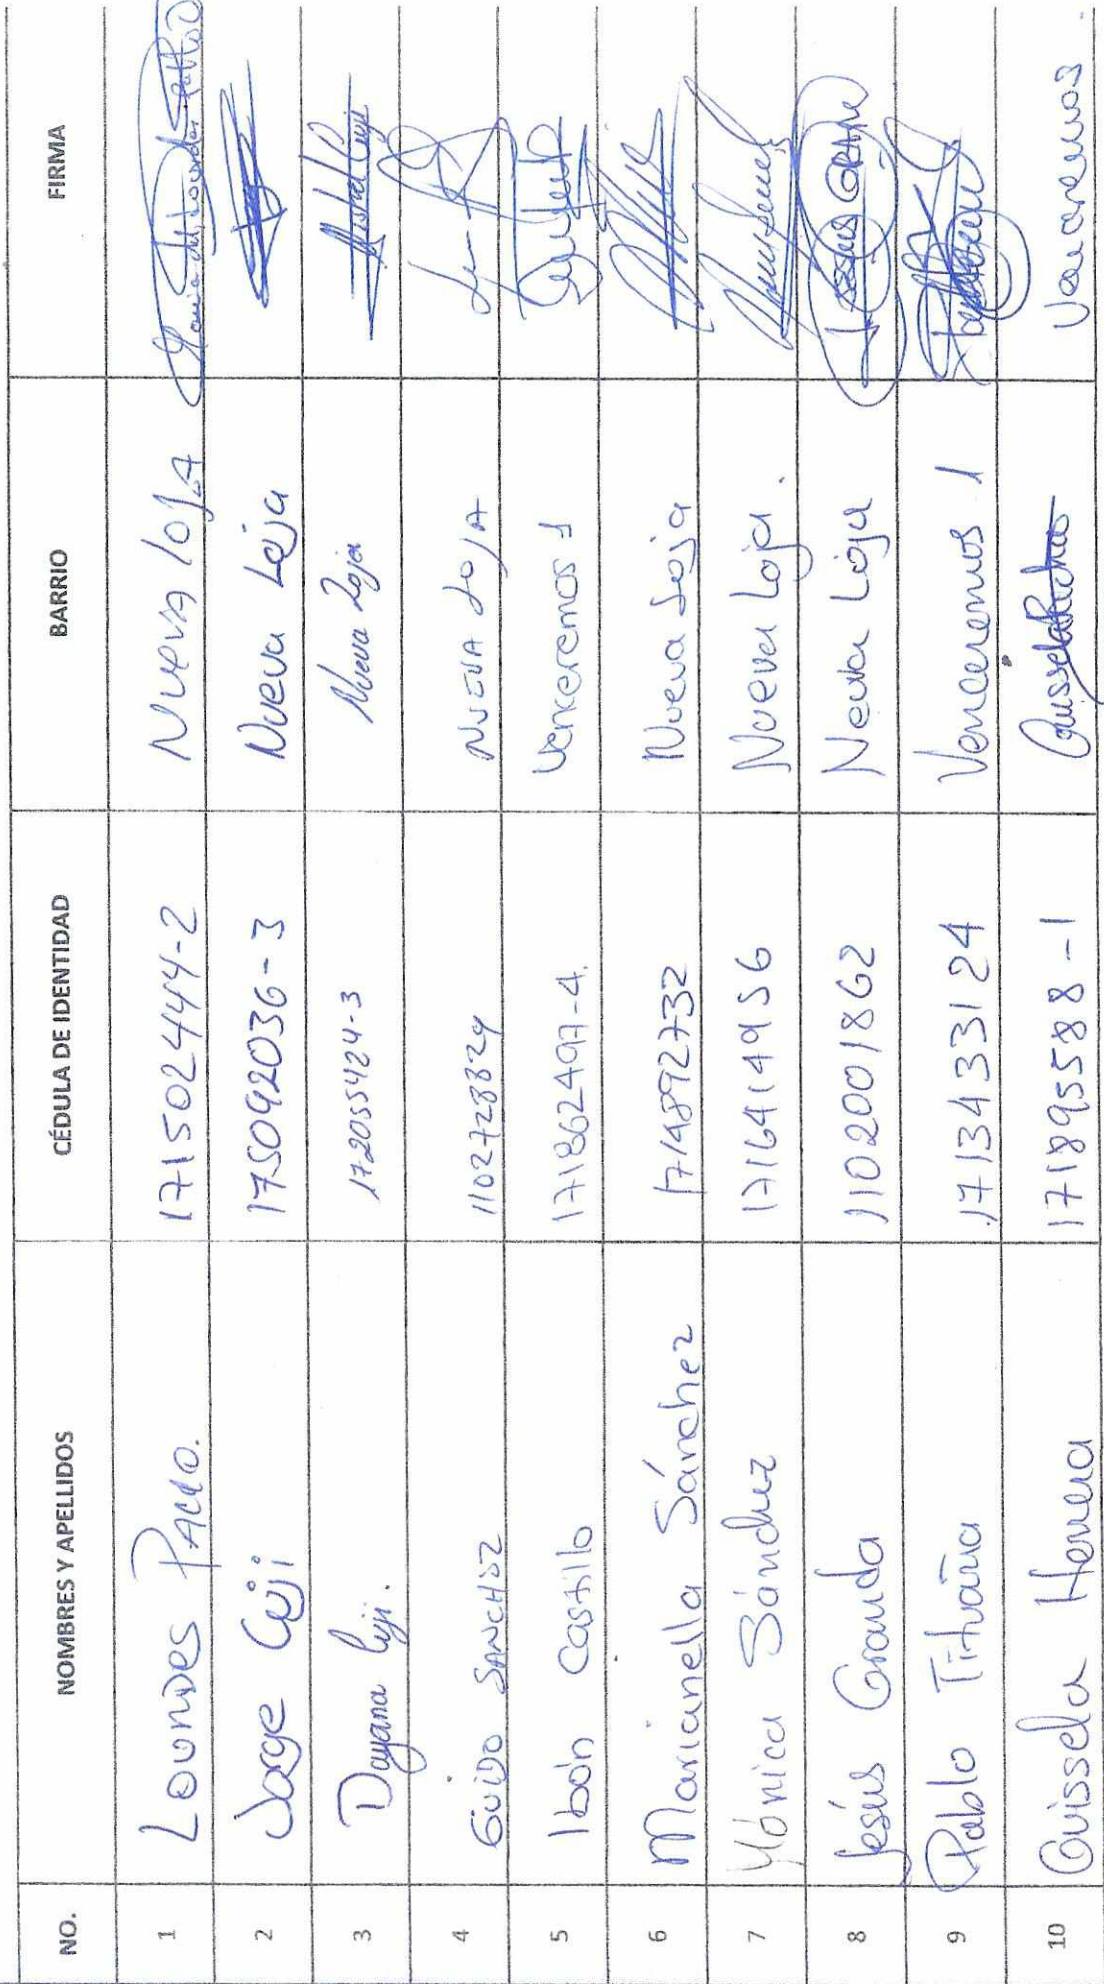 NO. NOMBRES Y APELLIDOS CÉDULA DE IDENTIDAD BARRIO FIRMA
1 Lourdes 171502444-2 Nueva loja
2 Jorge Cuji 175092036-3 Nueva Loja
3 Dayana Cuji. 172055424-3 Nueva Loja
4 Guido SANCHEZ NUEVA LOJA
5 Ibon Castillo 171862497-4. Venceremos 1
6 Marianella Sánchez 1714892732 Nueva Loja
7 Mónica Sánchez 1716414956 Nueva Loja.
8 Jesús Granda 1102001862 Nueva Loja Jesus
9 Pablo 1713433124 Venceremos 1
10 Guissela Herrera 171895588-1 Venceremos